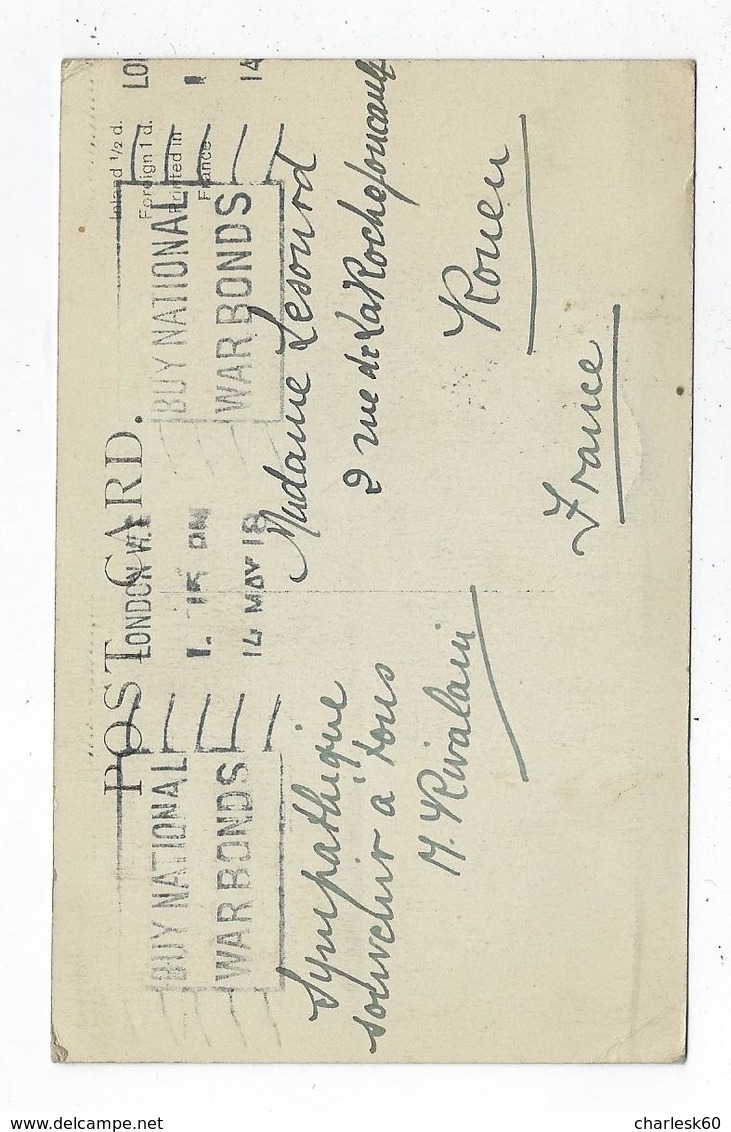 POST CARD.
Inland ½ d.
Foreign 1 d.
Printed in
France
BUY NATIONAL
WAR BONDS
LONDON W.
1. 15 PM
14 MAY 18
BUY NATIONAL
WAR BONDS
LO
1
14
Sympathique
souvenir à tous
M. Rivalain
Madame Lesourd
2 rue de La Rochefoucault
Rouen
France
charlesk60